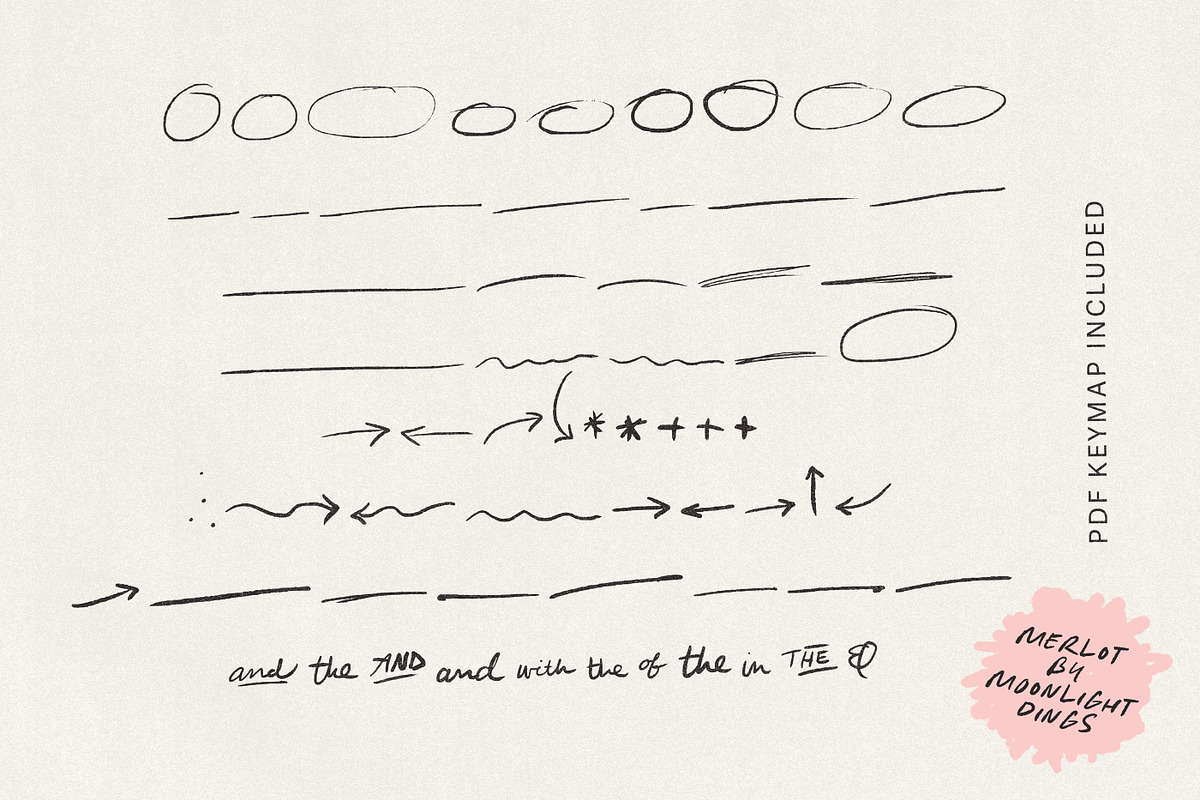 * * + + +
and the AND and with the of the in THE &
PDF KEYMAP INCLUDED
MERLOT
BY
MOONLIGHT
DINGS